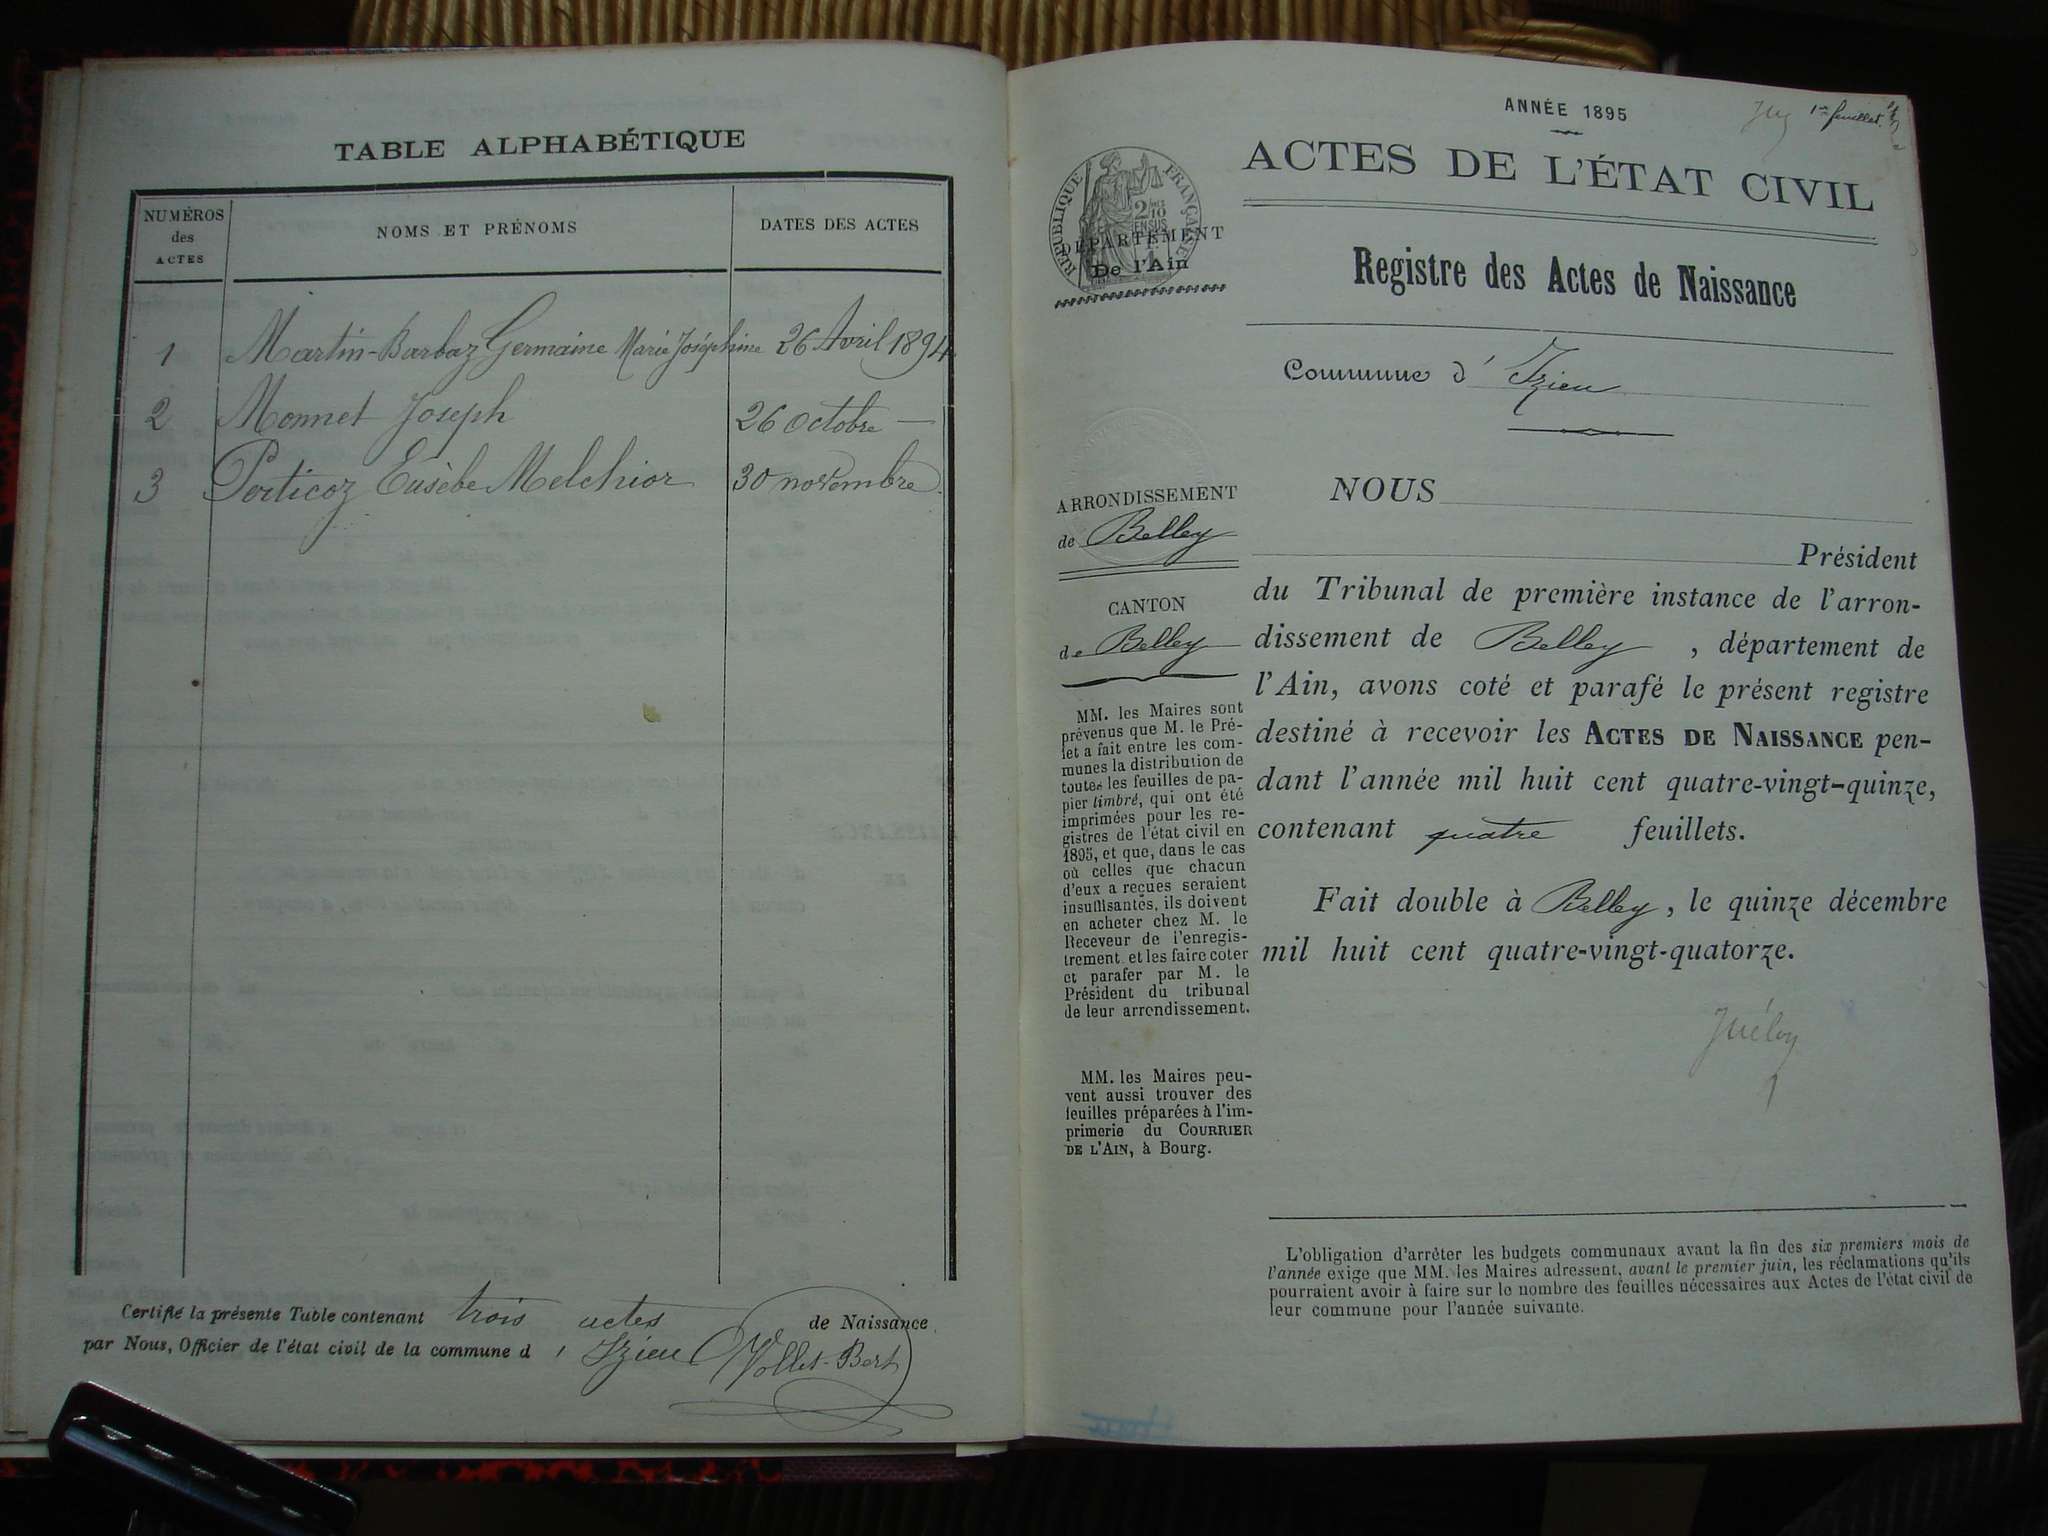 TABLE ALPHABÉTIQUE
NUMÉROS
des
ACTES
NOMS ET PRÉNOMS
DATES DES ACTES
1 Martin-Barbaz Germaine Marie Joséphine 26 Avril 1894
2 Monnet Joseph 26 octobre —
3 Perticoz Eusèbe Melchior 30 novembre
Certifié la présente Table contenant trois actes de Naissance
par Nous, Officier de l'état civil de la commune d' Izieu
Vollet-Bert
ANNÉE 1895
1er feuillet.
ACTES DE L'ÉTAT CIVIL
RÉPUBLIQUE FRANÇAISE
2/10
EN SUS
DÉPARTEMENT
De l'Ain
Registre des Actes de Naissance
Commune d' Izieu
ARRONDISSEMENT
de Belley
CANTON
de Belley
MM. les Maires sont
prévenus que M. le Pré-
fet a fait entre les com-
munes la distribution de
toutes les feuilles de pa-
pier timbré, qui ont été
imprimées pour les re-
gistres de l'état civil en
1895, et que, dans le cas
où celles que chacun
d'eux a reçues seraient
insuffisantes, ils doivent
en acheter chez M. le
Receveur de l'enregis-
trement et les faire coter
et parafer par M. le
Président du tribunal
de leur arrondissement.
MM. les Maires peu-
vent aussi trouver des
feuilles préparées à l'im-
primerie du COURRIER
DE L'AIN, à Bourg.
NOUS
Président
du Tribunal de première instance de l'arron-
dissement de Belley, département de
l'Ain, avons coté et parafé le présent registre
destiné à recevoir les ACTES DE NAISSANCE pen-
dant l'année mil huit cent quatre-vingt-quinze,
contenant quatre feuillets.
Fait double à Belley, le quinze décembre
mil huit cent quatre-vingt-quatorze.
L'obligation d'arrêter les budgets communaux avant la fin des six premiers mois de
l'année exige que MM. les Maires adressent, avant le premier juin, les réclamations qu'ils
pourraient avoir à faire sur le nombre des feuilles nécessaires aux Actes de l'état civil de
leur commune pour l'année suivante.